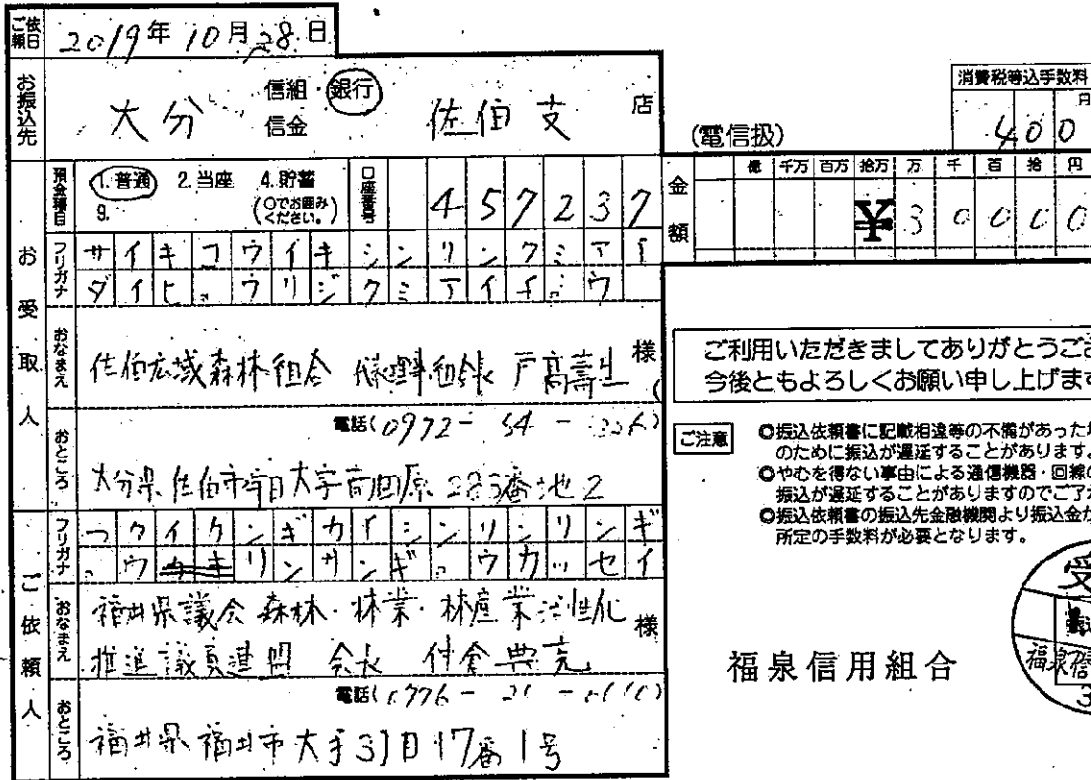 ご依頼日 2019年10月28日
お振込先 大分 信組 銀行 信金 佐伯支 店
消費税等込手数料
円
400
(電信扱)
預金種目 1.普通 2.当座 4.貯蓄 9. (○でお囲みください。)
口座番号 457237
金額 億 千万 百万 拾万 万 千 百 拾 円
¥30000
お受取人
フリガナ サイキコウイキシンリンクミアイ
ダイヒョウリジクミアイチョウ
おなまえ 佐伯広域森林組合 代表理事組合長 戸高壽生 様
電話(0972-54-
おところ 大分県佐伯市宇目大字南田原283番地2
ご依頼人
フリガナ フクイケンギカイシンリンリンギ
ョウリンサンギョウカッセイ
おなまえ 福井県議会 森林・林業・林産業活性化 様
推進議員連盟 会長 仲倉典克
電話(0776-21-0111)
おところ 福井県福井市大手3丁目17番1号
ご利用いただきましてありがとうござ
今後ともよろしくお願い申し上げます
ご注意
○振込依頼書に記載相違等の不備があった場
のために振込が遅延することがあります。
○やむを得ない事由による通信機器・回線の
振込が遅延することがありますのでご了
○振込依頼書の振込先金融機関より振込金が
所定の手数料が必要となります。
福泉信用組合
受
福泉信